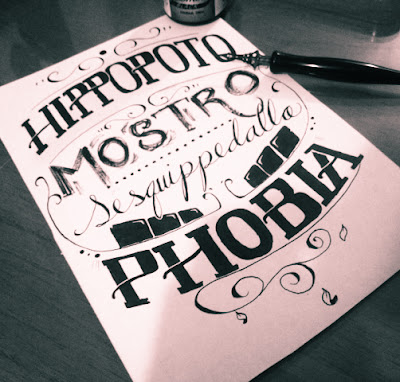 HIPPOPOTO
MOSTRO
sesquippedallo
PHOBIA